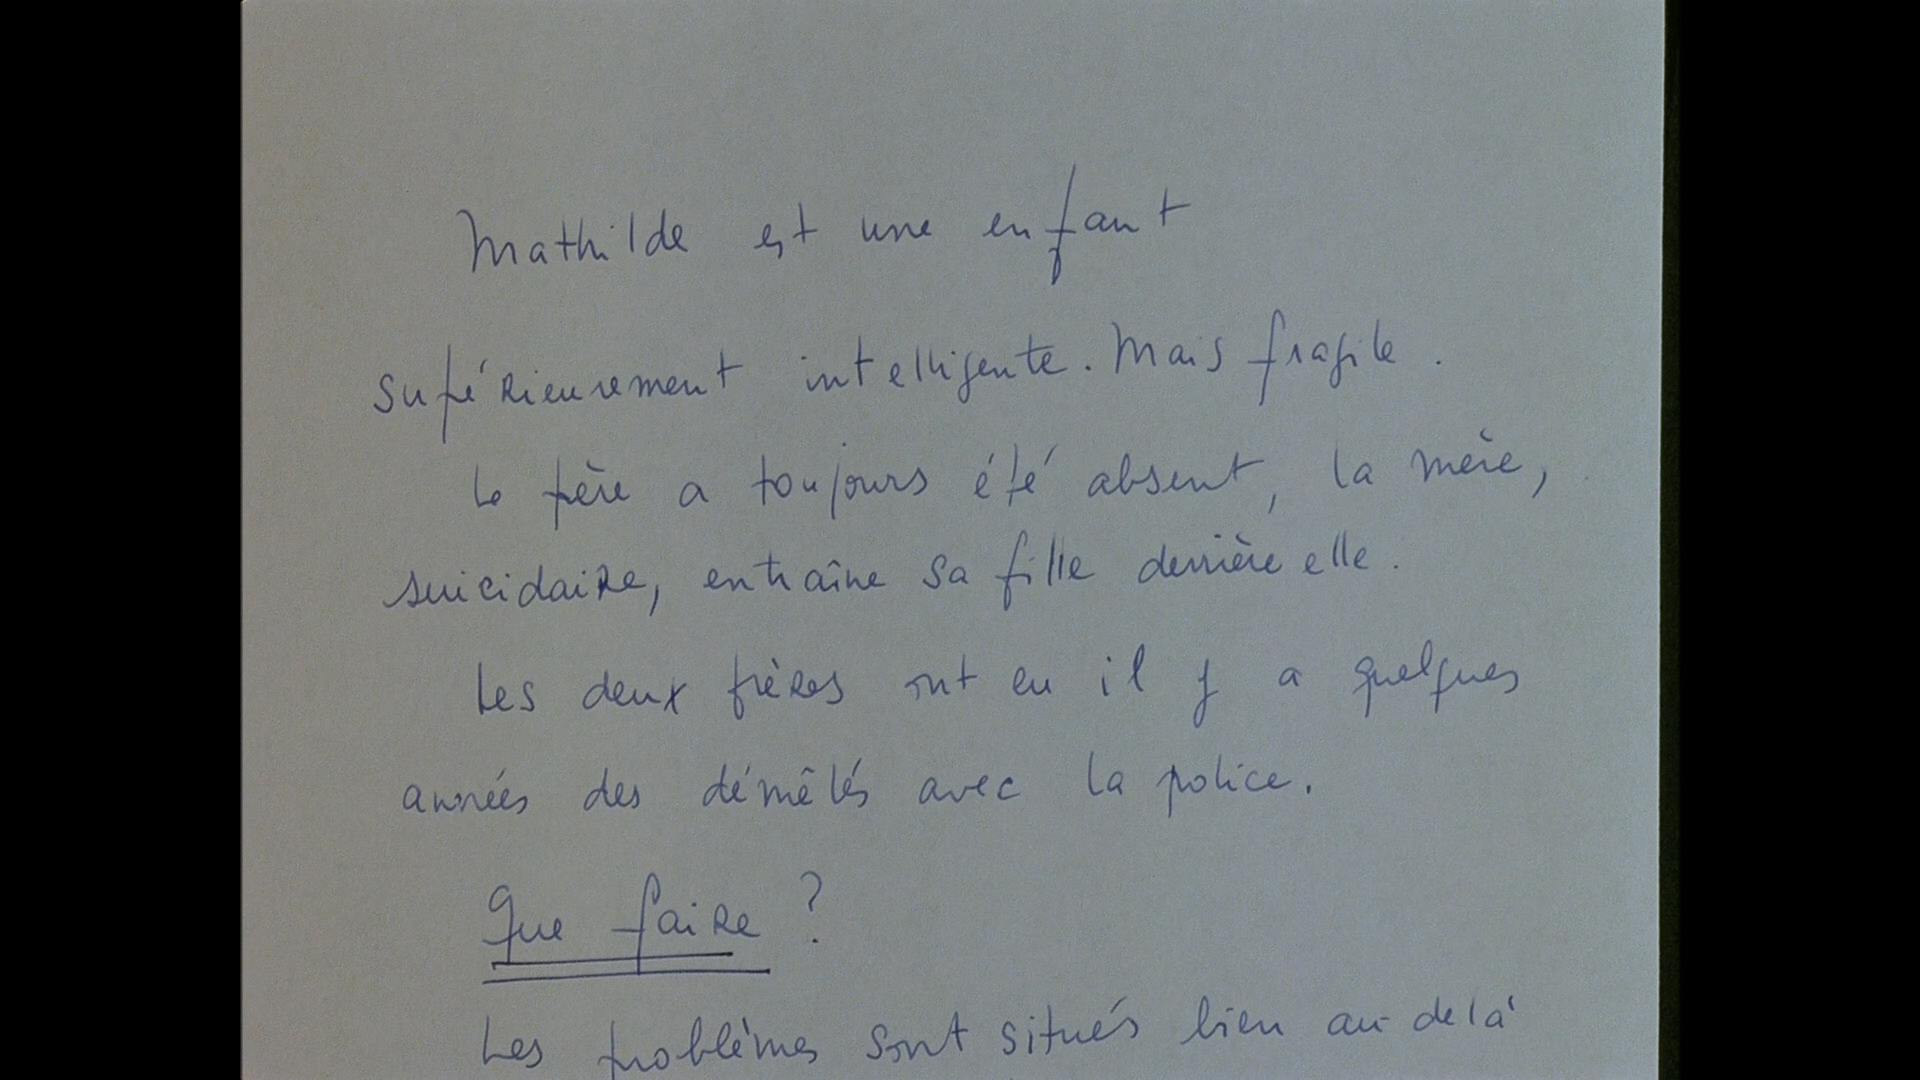 Mathilde est une enfant
supérieurement intelligente. Mais fragile.
Le père a toujours été absent, la mère,
suicidaire, entraîne sa fille derrière elle.
Les deux frères ont eu il y a quelques
années des démêlés avec la police.
Que faire ?
Les problèmes sont situés bien au-delà